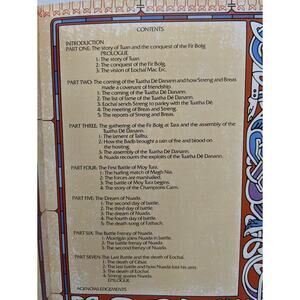 CONTENTS
INTRODUCTION
PART ONE: The story of Tuan and the conquest of the Fir Bolg
PROLOGUE
1: The story of Tuan.
2: The conquest of the Fir Bolg.
3: The vision of Eochai Mac Erc.
PART TWO: The coming of the Tuatha Dé Danann and how Streng and Breas
made a covenant of friendship.
1: The coming of the Tuatha Dé Danann.
2: The list of fame of the Tuatha Dé Danann.
3: Eochai sends Streng to parley with the Tuatha Dé.
4: The meeting of Breas and Streng.
5: The reports of Streng and Breas.
PART THREE: The gathering of the Fir Bolg at Tara and the assembly of the
Tuatha Dé Danann.
1: The lament of Tailtu.
2: How the Badb brought a rain of fire and blood on
the hosting.
3: The assembly of the Tuatha Dé Danann.
4: Nuada recounts the exploits of the Tuatha Dé Danann.
PART FOUR: The First Battle of Moy Tura.
1: The hurling match of Magh Nia.
2: The forces are marshalled.
3: The battle of Moy Tura begins.
4: The story of the Champion's Cairn.
PART FIVE: The Dream of Nuada.
1: The second day of battle.
2: The third day of battle.
3: The dream of Nuada.
4: The fourth day of battle.
5: The death song of Fathach.
PART SIX: The Battle Frenzy of Nuada.
1: Morrigan joins Nuada in battle.
2: The battle frenzy of Nuada.
3: The second frenzy of Nuada.
PART SEVEN: The Last Battle and the death of Eochai.
1: The death of César.
2: The last battle and how Nuada lost his arm.
3: The death of Eochai.
4: Streng spares Nuada.
EPILOGUE.
ACKNOWLEDGEMENTS